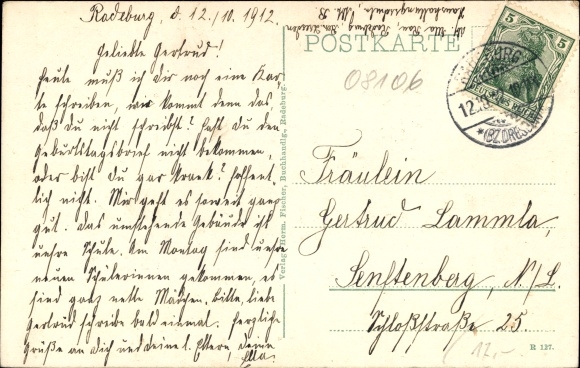 Radeburg, d. 12./10. 1912.
Geliebte Gertrud!
Heute muß ich dir noch eine Kar-
te schreiben, wie kommt denn das,
daß du nicht schreibst? Hast du den
Geburtstagsbrief nicht bekommen,
oder bist du gar krank? Hoffent-
lich nicht. Mir geht es soweit ganz
gut. Das umstehende Gebäude ist
unsre Schule. Am Montag sind unsre
neuen Schülerinnen gekommen, es
sind ganz nette Mädchen. Bitte, liebe
Gertrud schreibe bald einmal. Herzliche
Grüße an dich und deine l. Eltern, deine
Ella.
Radeburg, Bez. Dresden
Haushaltungsschule
Verlag Herm. Fischer, Buchhandlg., Radeburg.
POSTKARTE
08106
5 5
DEUTSCHES REICH
RADEBURG
12.10.
*(BZ. DRESD
Fräulein
Gertrud Lammla,
Senftenberg, N./L.
Schloßstraße 25.
12,-
R 127.